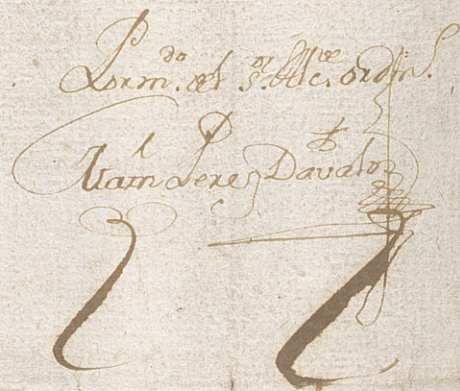 Por m.do del s.or Alc.de ordin.o
Juan Perez Davalo